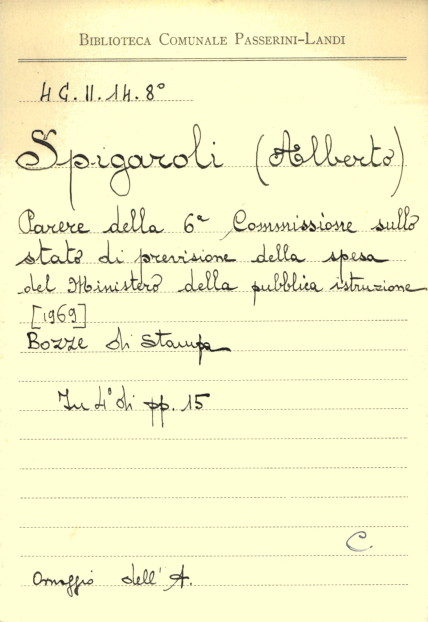 BIBLIOTECA COMUNALE PASSERINI-LANDI
4 G. II. 14. 8°
Spigaroli (Alberto)
Parere della 6ª Commissione sullo
stato di previsione della spesa
del Ministero della pubblica istruzione
[1969]
Bozze di stampa
In 4° di pp. 15
C
Omaggio dell'A.